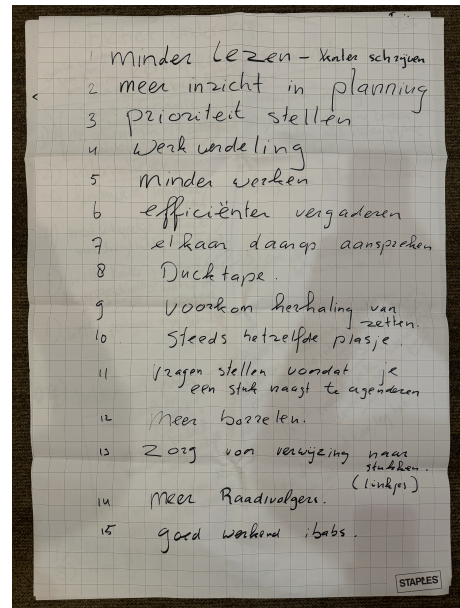 1 minder lezen - korter schrijven
2 meer inzicht in planning
3 prioriteit stellen
4 werkverdeling
5 minder werken
6 efficiënter vergaderen
7 elkaar daarop aanspreken
8 Ducktape.
9 voorkom herhaling van
zetten.
10 Steeds hetzelfde plasje.
11 vragen stellen voordat je
een stuk vraagt te agenderen
12 Meer borrelen.
13 Zorg voor verwijzing naar
stukken.
(linkjes)
14 Meer Raadsvolgers.
15 goed werkend ibabs.
STAPLES